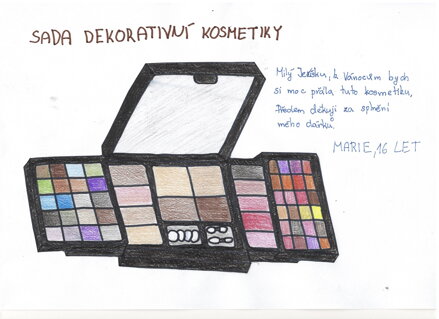 SADA DEKORATIVNÍ KOSMETIKY
Milý Ježíšku, k Vánocům bych
si moc přála tuto kosmetiku.
Předem děkuji za splnění
mého dárku.
MARIE, 16 LET